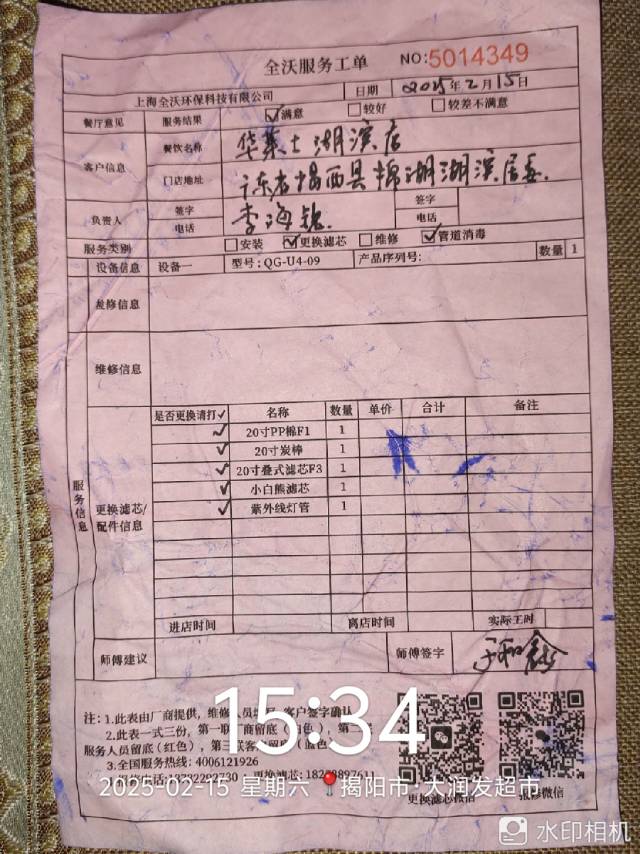 全沃服务工单 NO:5014349
上海全沃环保科技有限公司 日期 2025年2月15日
餐厅意见 服务结果 ☑满意 □较好 □较差不满意
客户信息 餐饮名称 华莱士湖滨店
门店地址 广东省揭西县棉湖湖滨居委
负责人 签字 电话 李海 签字 电话
服务类别 □安装 ☑更换滤芯 □维修 ☑管道消毒
设备信息 设备一 型号:QG-U4-09 产品序列号: 数量 1
服务信息
报修信息
维修信息
更换滤芯/配件信息
是否更换请打✓ 名称 数量 单价 合计 备注
✓ 20寸PP棉F1 1
✓ 20寸炭棒 1
✓ 20寸叠式滤芯F3 1
✓ 小白熊滤芯 1
✓ 紫外线灯管 1
进店时间 离店时间 实际工时
师傅建议 师傅签字
注:1.此表由厂商提供,维修人员 客户签字确认
2.此表一式三份,第一联厂商留底(白色),第二
服务人员留底(红色),第三联客 留底(蓝色
3.全国服务热线:4006121926
更换滤芯:
更换滤芯微信 报修微信
15:34
2025-02-15 星期六 揭阳市·大润发超市
水印相机